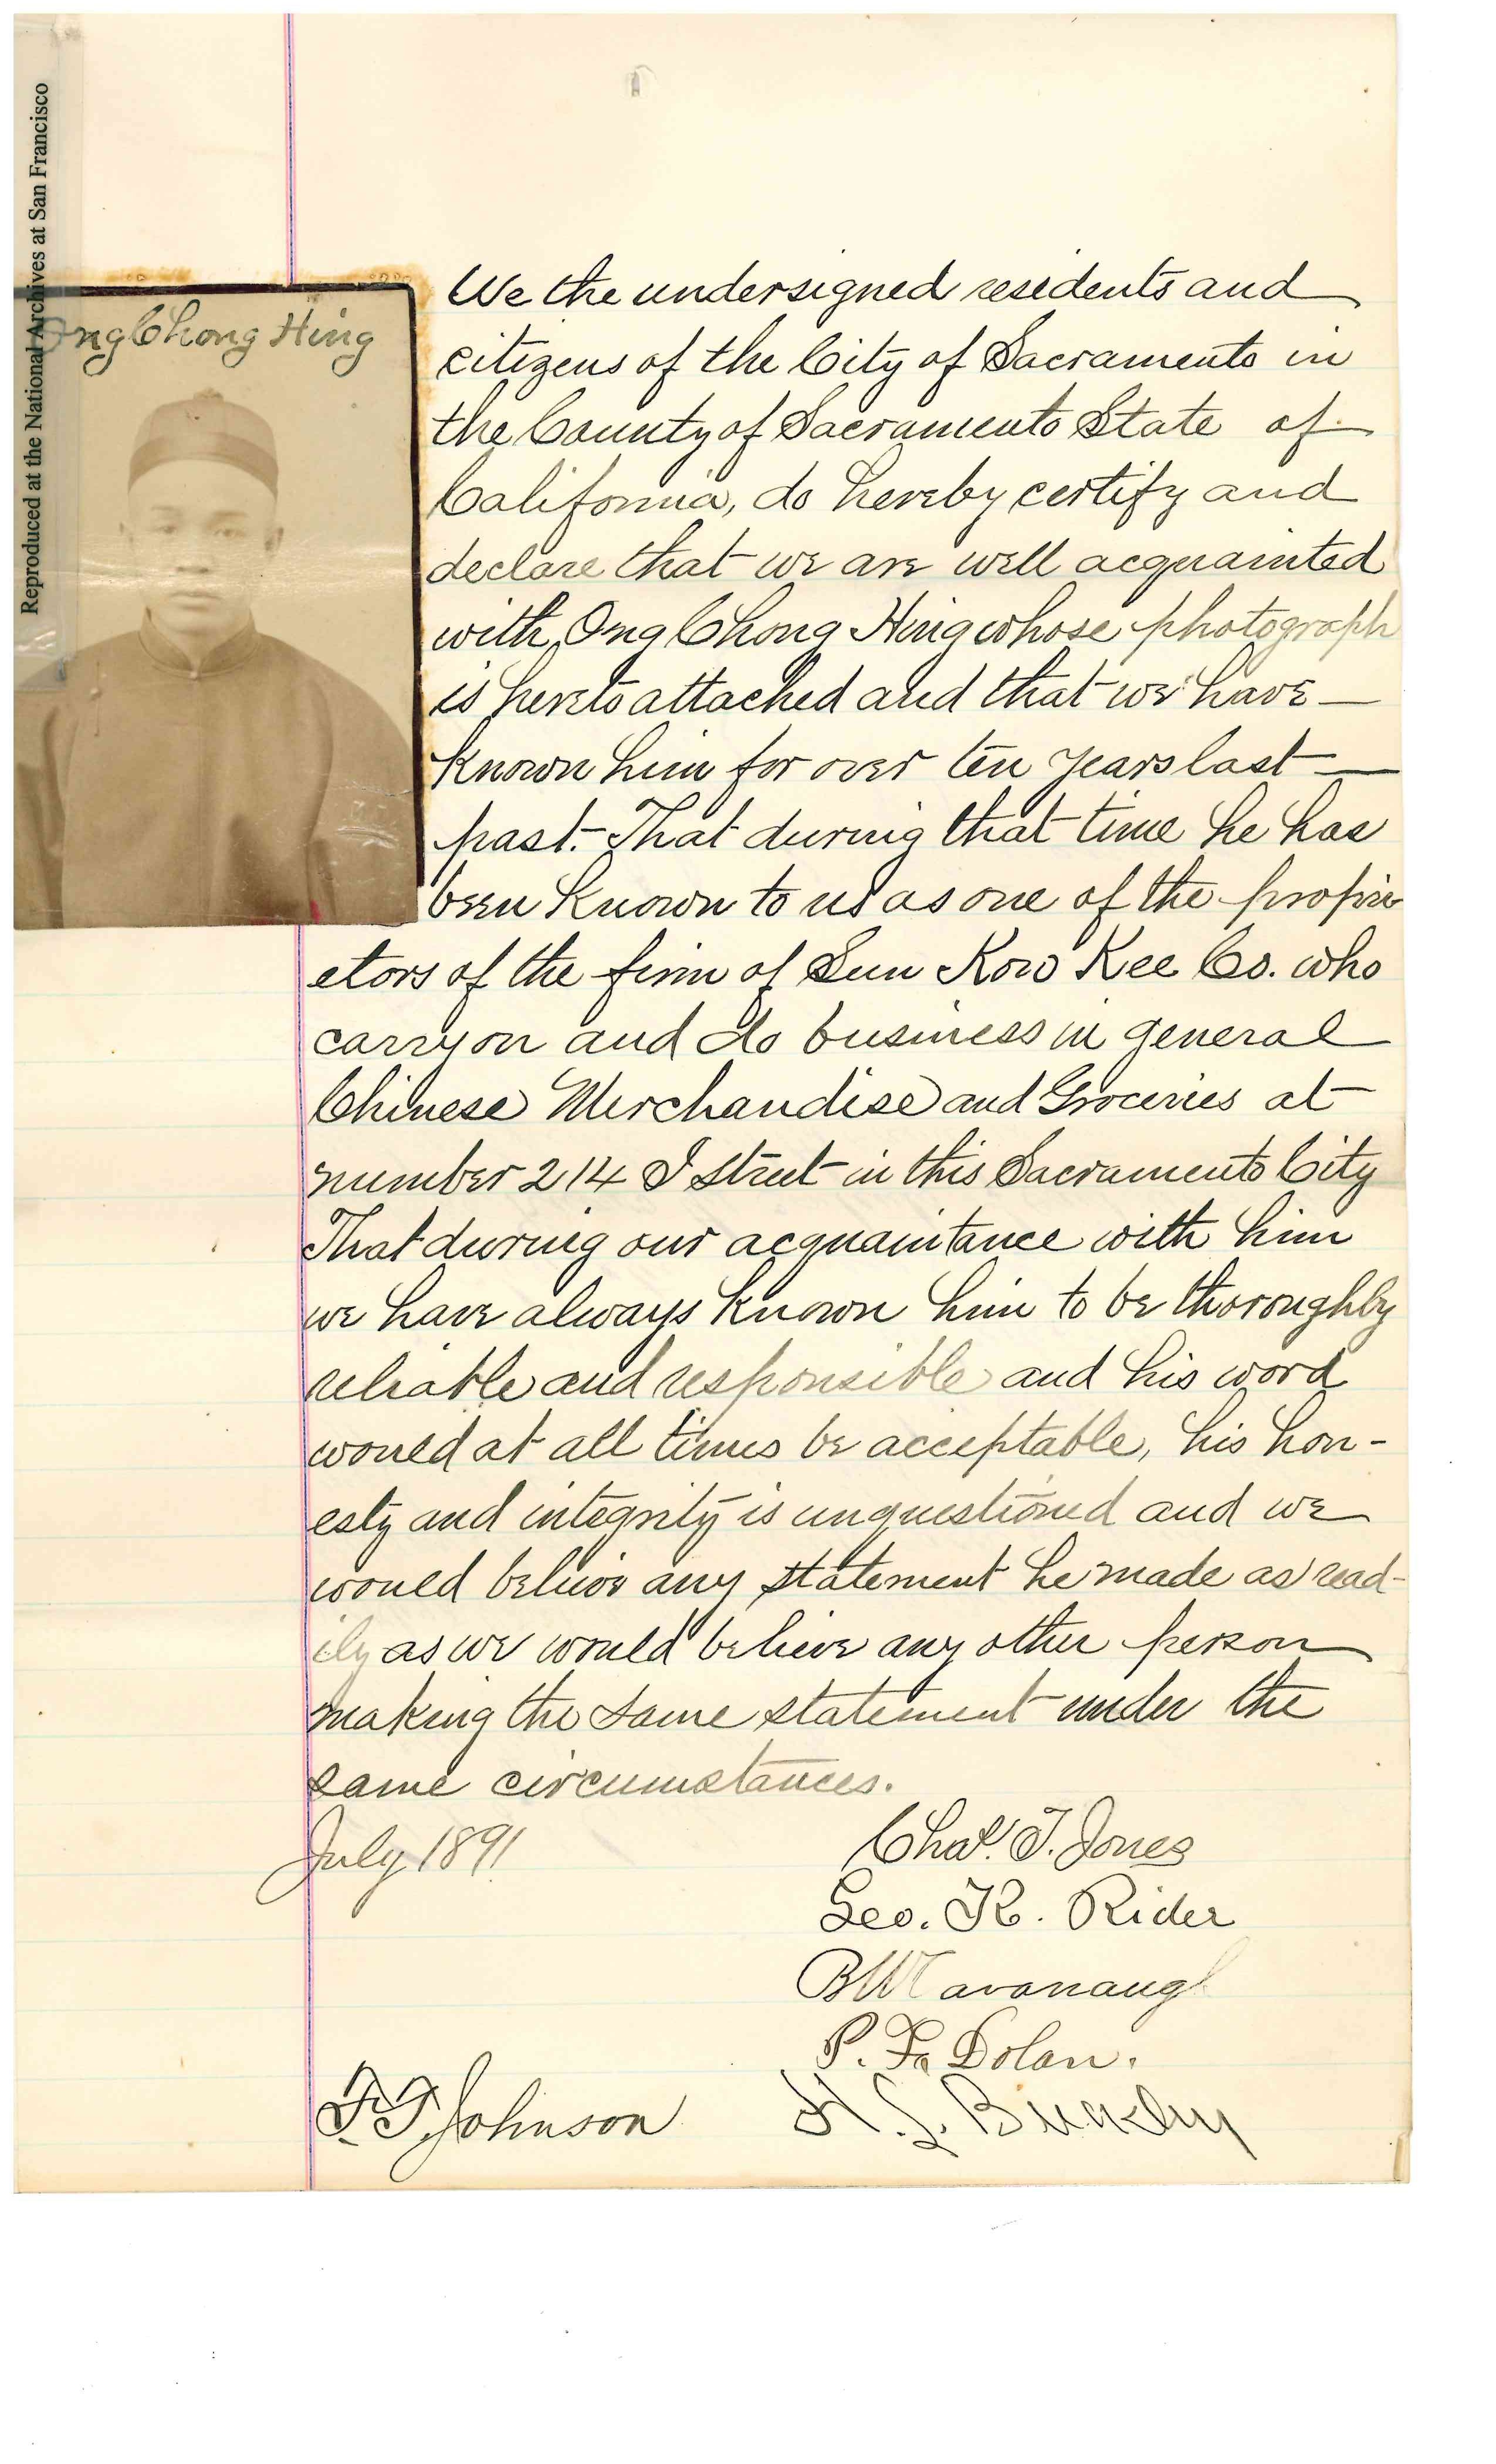 Reproduced at the National Archives at San Francisco
Ong Chong Hing
We the undersigned residents and
citizens of the City of Sacramento in
the County of Sacramento State of
California, do hereby certify and
declare that we are well acquainted
with Ong Chong Hing whose photograph
is hereto attached and that we have
known him for over ten years last
past. That during that time he has
been known to us as one of the propri
etors of the firm of Sun Kow Kee Co. who
carry on and do business in general
Chinese Merchandise and Groceries at
number 214 I street in this Sacramento City
That during our acquaintance with him
we have always known him to be thoroughly
reliable and responsible and his word
would at all times be acceptable, his hon-
esty and integrity is unquestioned and we
would believe any statement he made as read-
ily as we would believe any other person
making the same statement under the
same circumstances.
July 1891
Chas. T. Jones
Geo. K. Rider
B W Cavanaugh
P. F. Dolan.
F. T. Johnson
H. L. Buckley